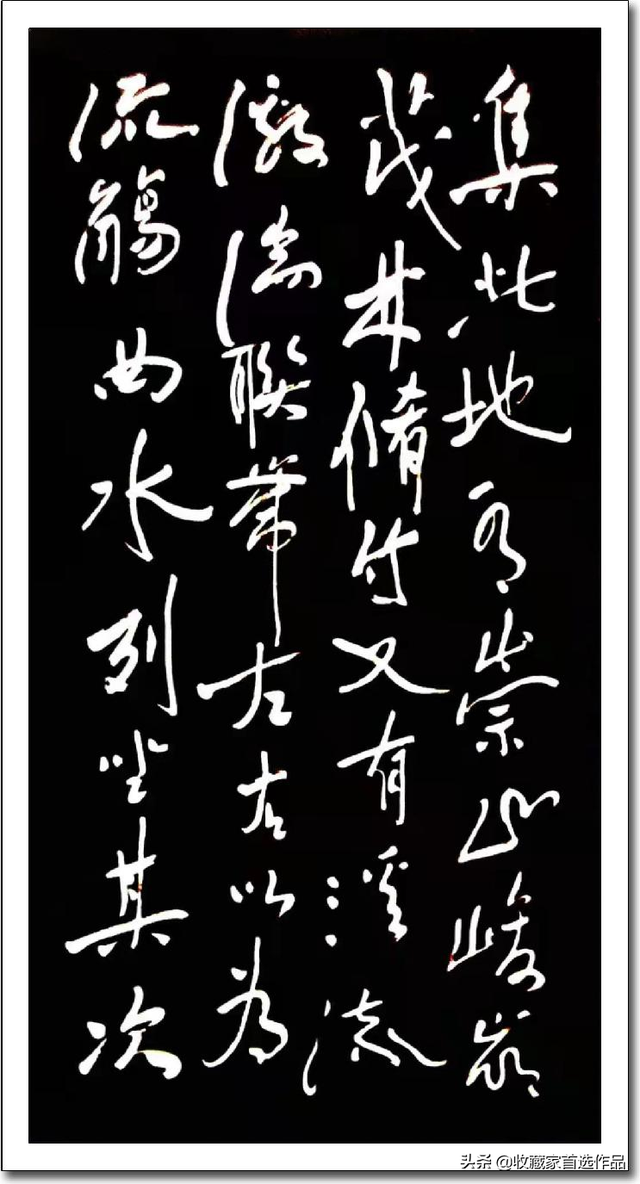 集此地有崇山峻嶺
茂林脩竹又有溪流
激湍聯帶左右以為
流觴曲水列坐其次
头条 @收藏家首选作品